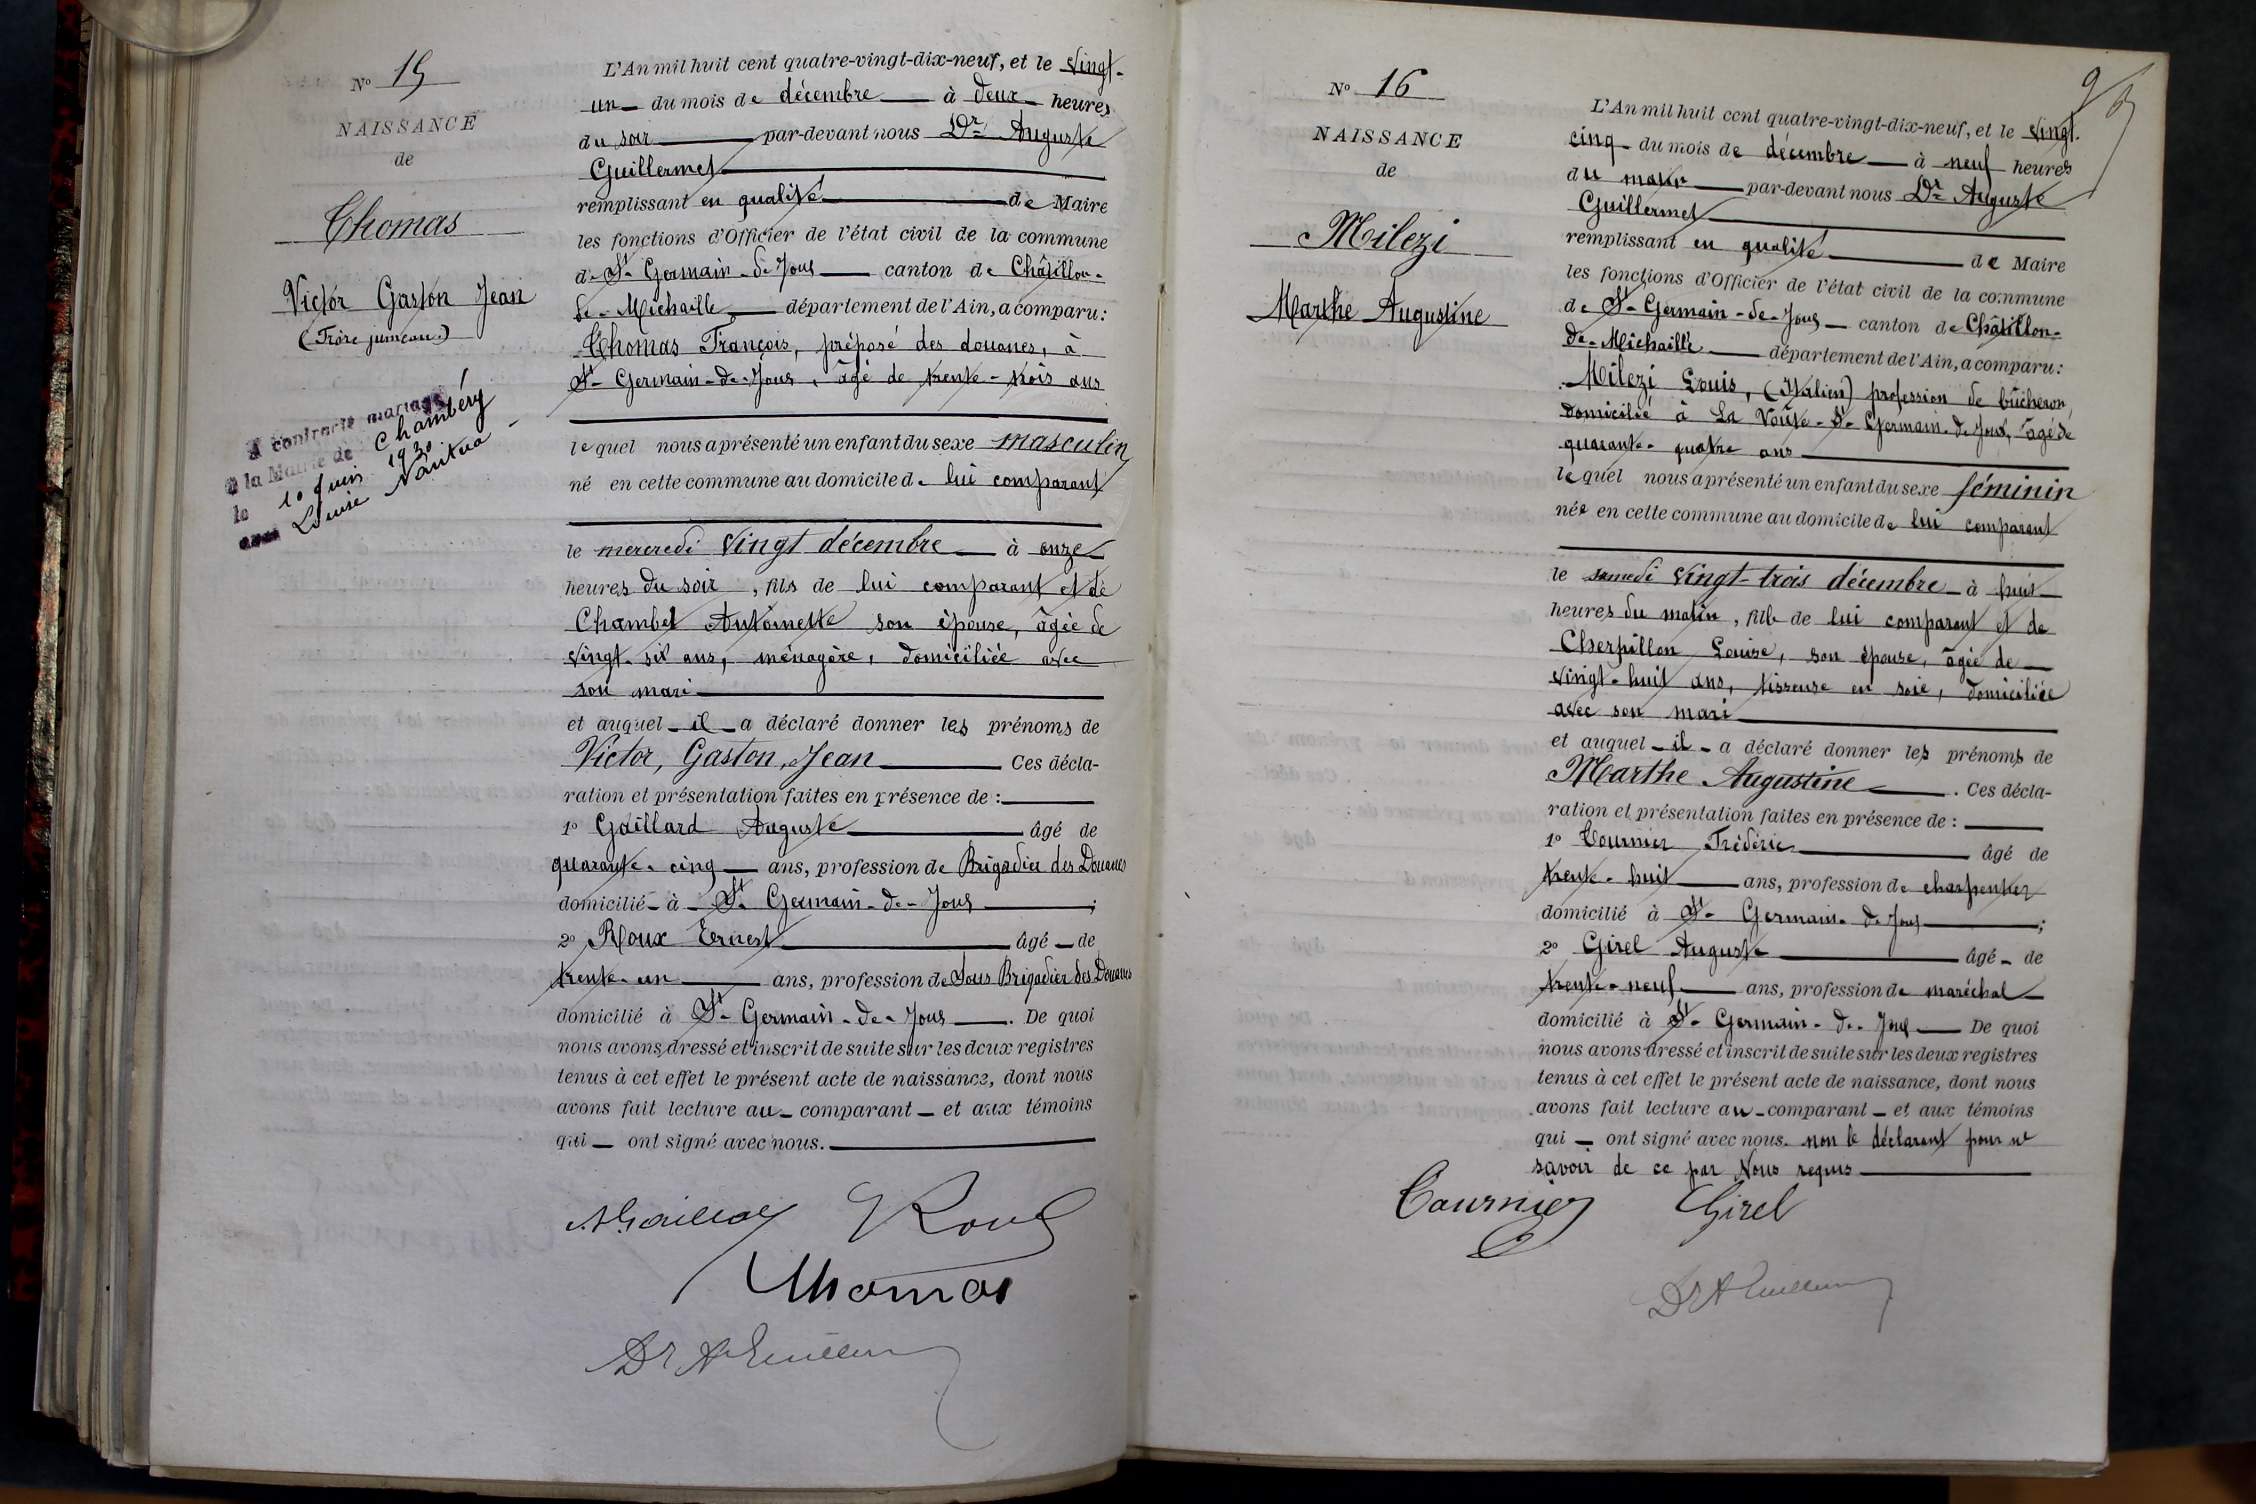 Nº 15
NAISSANCE
de
Thomas
Victor Gaston Jean
(Frère jumeau)
A contracté mariage
à la Mairie de Chambéry
le 10 juin 1930
avec Louise Nantua
L'An mil huit cent quatre-vingt-dix-neuf, et le vingt-
un du mois de décembre à deux heures
du soir par-devant nous Dr Auguste
Guillermet
remplissant en qualité de Maire
les fonctions d'Officier de l'état civil de la commune
de St-Germain-de-Joux canton de Châtillon-
de-Michaille département de l'Ain, a comparu :
Thomas François, préposé des douanes, à
St-Germain-de-Joux, âgé de trente-trois ans
lequel nous a présenté un enfant du sexe masculin
né en cette commune au domicile de lui comparant
le mercredi vingt décembre à onze
heures du soir, fils de lui comparant et de
Chambet Antoinette son épouse, âgée de
vingt-six ans, ménagère, domiciliée avec
son mari
et auquel il a déclaré donner les prénoms de
Victor, Gaston, Jean Ces décla-
ration et présentation faites en présence de :
1º Gaillard Auguste âgé de
quarante-cinq ans, profession de Brigadier des Douanes
domicilié à St-Germain-de-Joux ;
2º Roux Ernest âgé de
trente-un ans, profession de Sous Brigadier des Douanes
domicilié à St-Germain-de-Joux. De quoi
nous avons dressé et inscrit de suite sur les deux registres
tenus à cet effet le présent acte de naissance, dont nous
avons fait lecture au comparant et aux témoins
qui ont signé avec nous.
AGaillard Roux
Thomas
Dr A Guillermet
Nº 16
NAISSANCE
de
Milezi
Marthe Augustine
L'An mil huit cent quatre-vingt-dix-neuf, et le vingt-
cinq du mois de décembre à neuf heures
du matin par-devant nous Dr Auguste
Guillermet
remplissant en qualité de Maire
les fonctions d'Officier de l'état civil de la commune
de St-Germain-de-Joux canton de Châtillon-
de-Michaille département de l'Ain, a comparu :
Milezi Louis, (Italien) profession de bûcheron,
domicilié à La Voûte-St-Germain-de-Joux, âgé de
quarante-quatre ans
lequel nous a présenté un enfant du sexe féminin
née en cette commune au domicile de lui comparant
le samedi vingt-trois décembre à huit
heures du matin, fille de lui comparant et de
Cherpillon Louise, son épouse, âgée de
vingt-huit ans, tisseuse en soie, domiciliée
avec son mari
et auquel il a déclaré donner les prénoms de
Marthe Augustine. Ces décla-
ration et présentation faites en présence de :
1º Tournier Frédéric âgé de
trente-huit ans, profession de charpentier
domicilié à St-Germain-de-Joux ;
2º Girel Auguste âgé de
trente-neuf ans, profession de maréchal
domicilié à St-Germain-de-Joux De quoi
nous avons dressé et inscrit de suite sur les deux registres
tenus à cet effet le présent acte de naissance, dont nous
avons fait lecture au comparant et aux témoins
qui ont signé avec nous. non le déclarant pour ne
savoir de ce par Nous requis
Tournier Girel
Dr A Guillermet